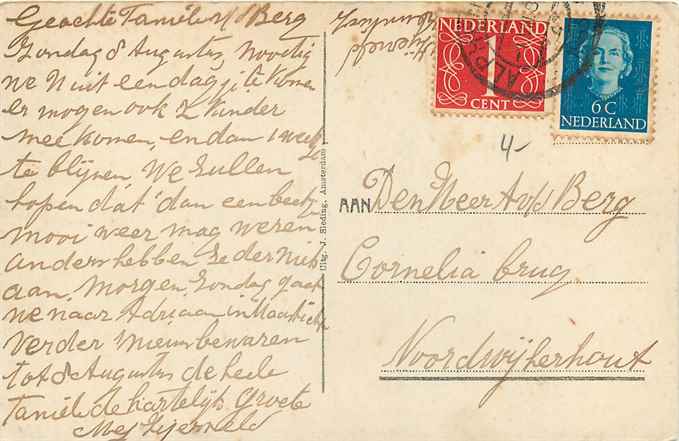 Geachte Familie v/d Berg
Zondag 8 Augustus, Noodig
we U uit een dagje te komen
er mogen ook 2 kinder
mee komen, en dan 1 week
te blijven. We zullen
hopen dat dan een beetje
mooi weer mag weren
anders hebben ze der niets
aan. Morgen Zondag gaat
we naar Adriaan in Maastricht
verder nieuws bewaren
tot 8 Augustus de heele
Familie de hartelijk groete
NEDERLAND
1
CENT
6 C
NEDERLAND
4-
Uitg. J. Sleding, Amsterdam
AAN Den Heer A v/d Berg
Cornelia brug
Noordwijkerhout